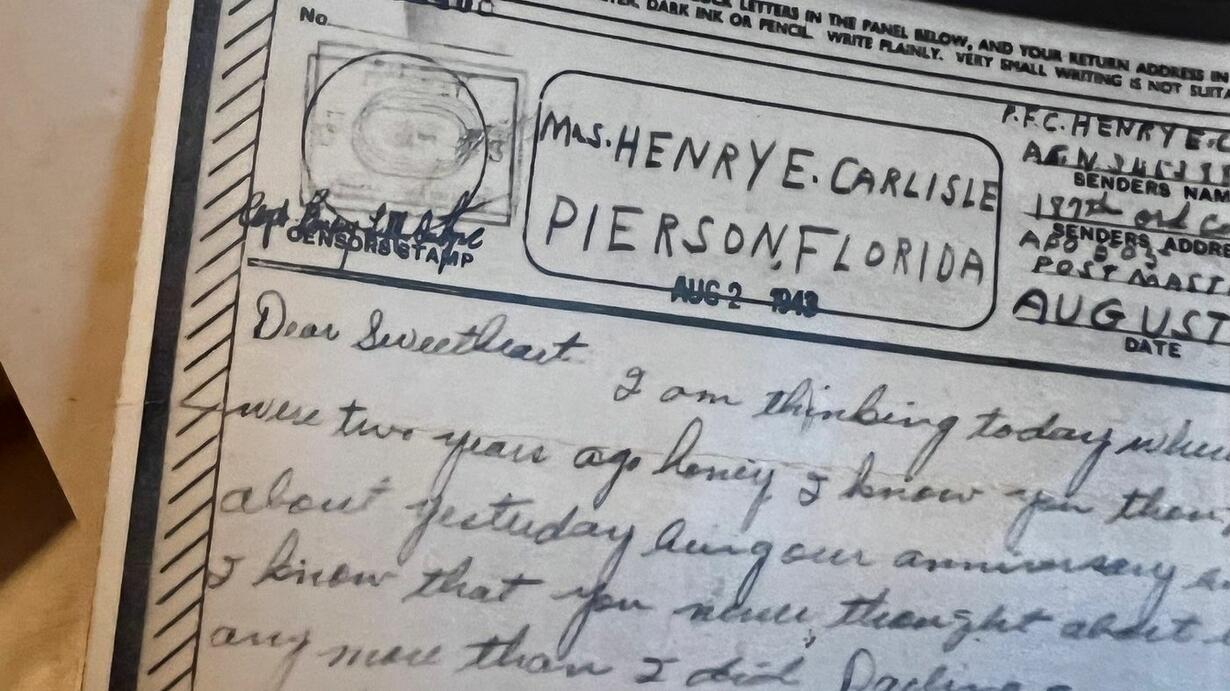 LETTERS IN THE PANEL BELOW, AND YOUR RETURN ADDRESS IN
DARK INK OR PENCIL. WRITE PLAINLY. VERY SMALL WRITING IS NOT SUITA
No.
CENSORS STAMP
Mrs. HENRY E. CARLISLE
PIERSON, FLORIDA
AUG 2 1943
P.F.C. HENRY E. C
A.S.N.
SENDERS NAM
187th ord C
SENDERS ADDRE
APO
POST MAST
AUGUST
DATE
Dear Sweetheart
I am thinking today
were two years ago honey I know you
about yesterday being our anniversary
I know that you never thought about
any more than I did Darling